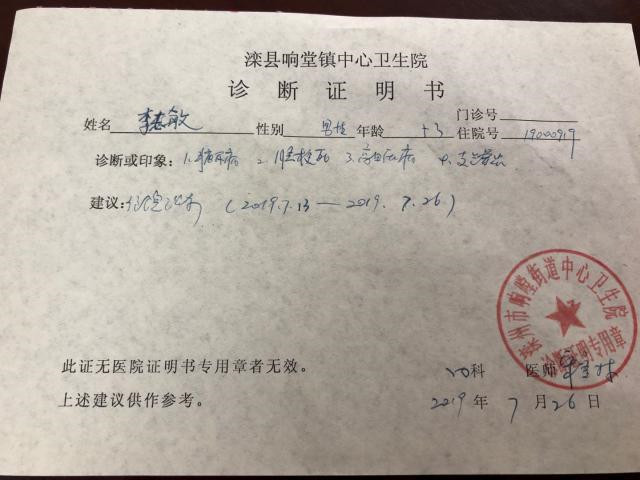 滦县响堂镇中心卫生院
诊断证明书
门诊号
姓名 李志敏 性别 男性 年龄 住院号 19000919
诊断或印象：1.糖尿病 2.脑梗死 3.高血压病 4.支气管炎
建议：住院治疗 （2019.7.13—2019.7.26）
滦州市响嘡街道中心卫生院
诊断证明专用章
此证无医院证明书专用章者无效。 内科 医师
上述建议供作参考。 2019年7月26日